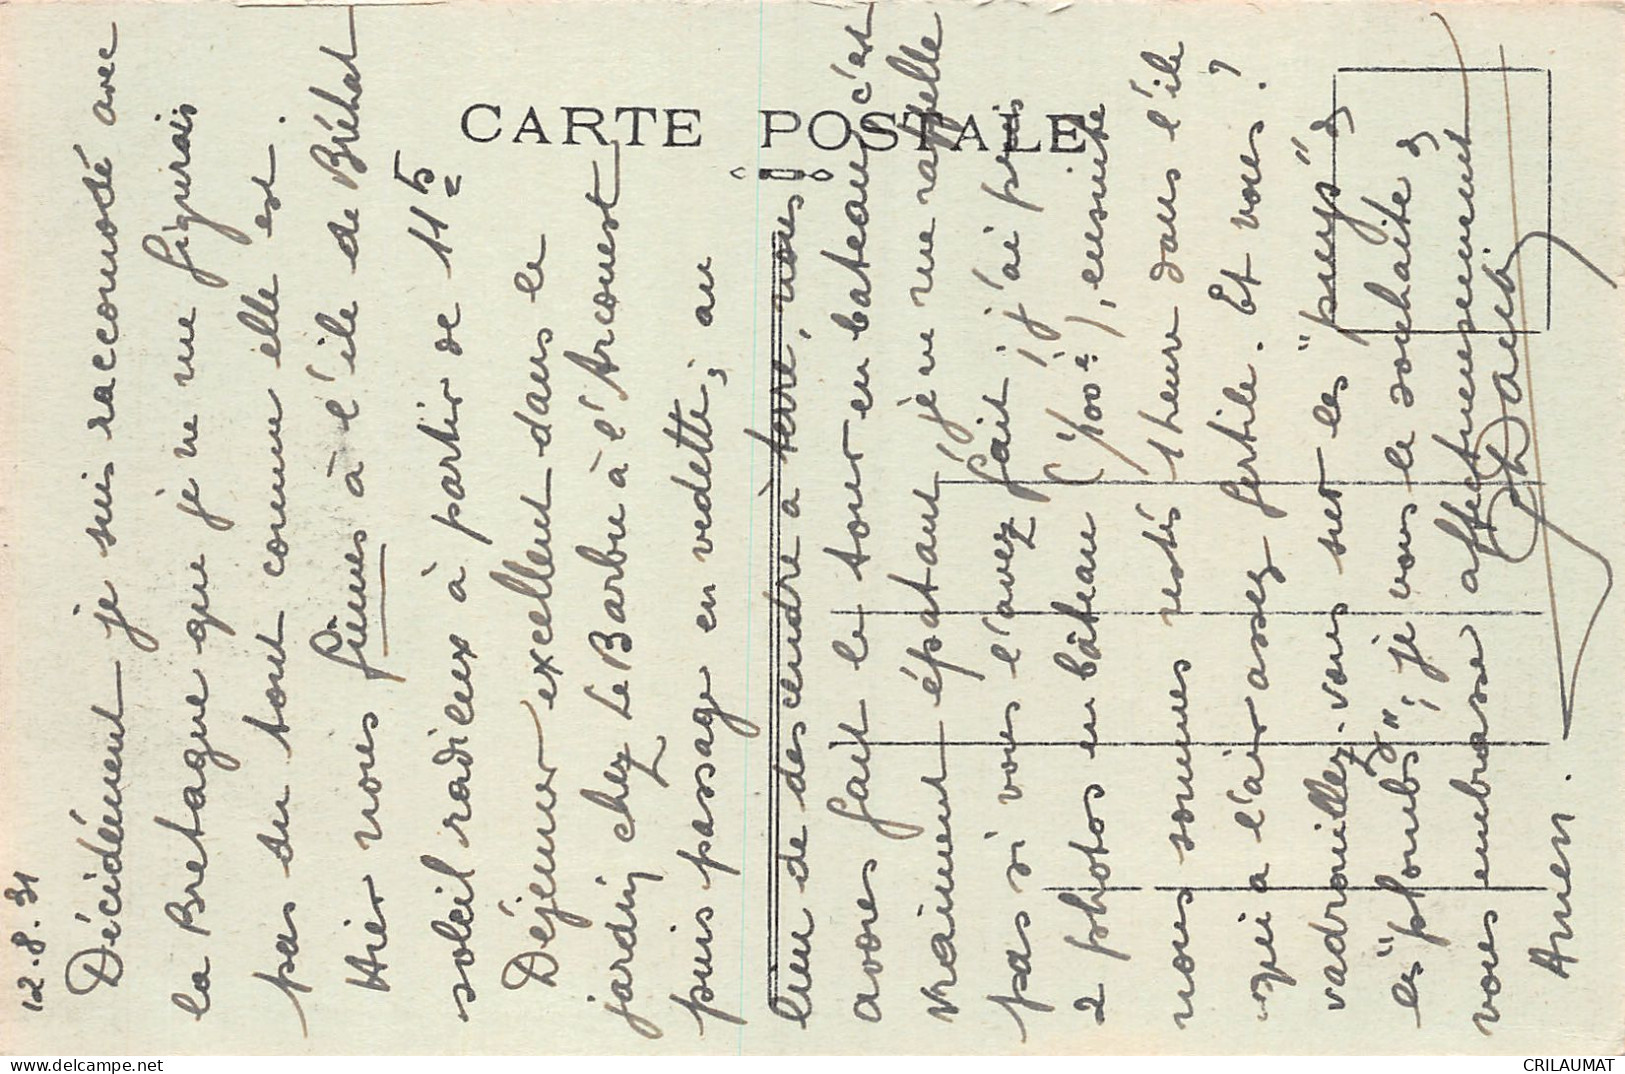 CARTE POSTALE
12.8.31
Décidément je suis raccomodé avec
la Bretagne que je ne me figurais
pas du tout comme elle est.
Hier nous fûmes à l'île de Bréhat
soleil radieux à partir de 11 h
Déjeuner excellent dans le
jardin chez Le Barbu à l'Arcouest
puis passage en vedette; au
lieu de descendre à terre, nous
avons fait le tour en bateau, c'est
vraiment épatant, je ne me rappelle
pas si vous l'avez fait; j'ai pris
2 photos en bâteau (1/100e), ensuite
nous sommes restés 1 heure dans l'île
qui a l'air assez fertile. Et vous?
vadrouillez-vous sur les "puys"
les "plombs"; je vous le souhaite &
vous embrasse affectueusement
Amen.